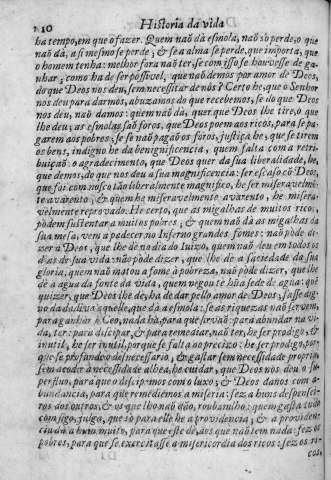 210 Historia da vida
ha tempo, em que o fazer. Quem naõ dà esmola, naõ só perde, o que
naõ dà, a si mesmo se perde; & se a alma se perde, que importa, que
o homem tenha: melhor fora naõ ter, se com isso se houvesse de ga-
nhar; como ha de ser possivel, que naõ demos por amor de Deos,
do que Deos nos deu, sem necessitar de nòs? Certo he, que o Senhor
nos deu para darmos, abuzamos do que recebemos, se do que Deos
nos deu, naõ damos: quem naõ dà, quer que Deos lhe tire, o que
lhe deu; as esmolas saõ foros, que Deos poem aos ricos, para se pa-
garem aos pobres; se se naõ pagaõ os foros, justiça he, que se tirem
os bens, indigno he da benignificencia, quem falta com a retri-
buiçaõ: o agradecimento, que Deos quer da sua liberalidade, he,
que demos, do que nos deu a sua magnificencia: ser escaso cõ Deos,
que foi com nosco taõ liberalmente magnifico, he ser miseravelmẽ-
te avarento; & quem he miseravelmente avarento, he misera-
velmente reprovado. He certo, que as migalhas de muitos ricos,
pòdem sustentar a muitos pobres; & quem naõ dà as migalhas da
sua mesa, vem a padecer no Inferno grandes fomes: naõ pòde di-
zer a Deos, que lhe dè no dia do Iuizo, quem naõ deu em todos os
dias de sua vida: naõ pòde dizer, que lhe dè a saciedade da sua
gloria, quem naõ matou a fome à pobreza, naõ pòde dizer, que lhe
dè a agua da fonte da vida, quem negou te hũa sede de agua: quẽ
quizer, que Deos lhe dè, ha de dar pello amor de Deos, fasse dig-
no da dadiva àquelle, que dà a esmola: se as riquezas naõ servem,
para ganhar o Ceo, nada ha, para que sirvaõ: para abundar na vi-
da, ter: para dilatar, & para rematar, naõ ter, he ser prodigo, &
inutil, he ser inutil, porque se falta ao precizo: he ser prodigo, por
que se profunde o desnecessario, & gastar sem necessidade propria,
sem acoder à necessidade alhea, he cuidar, que Deos nos deu o su-
perfluo, para que o desipemos com o luxo; & Deos danos com a-
bundancia, para que remediemos a miseria: fez a huns despensei-
ros dos outros, & os que lho naõ daõ, roubaõlho: quem gasta tudo
com sigo, julga, que só para elle he a providencia; & a providen-
cia dà a hum muito, para que este dè, aos que naõ tem nada: fez os
pobres, para que se exercitasse a misericordia dos ricos: fez os ri-
cos,